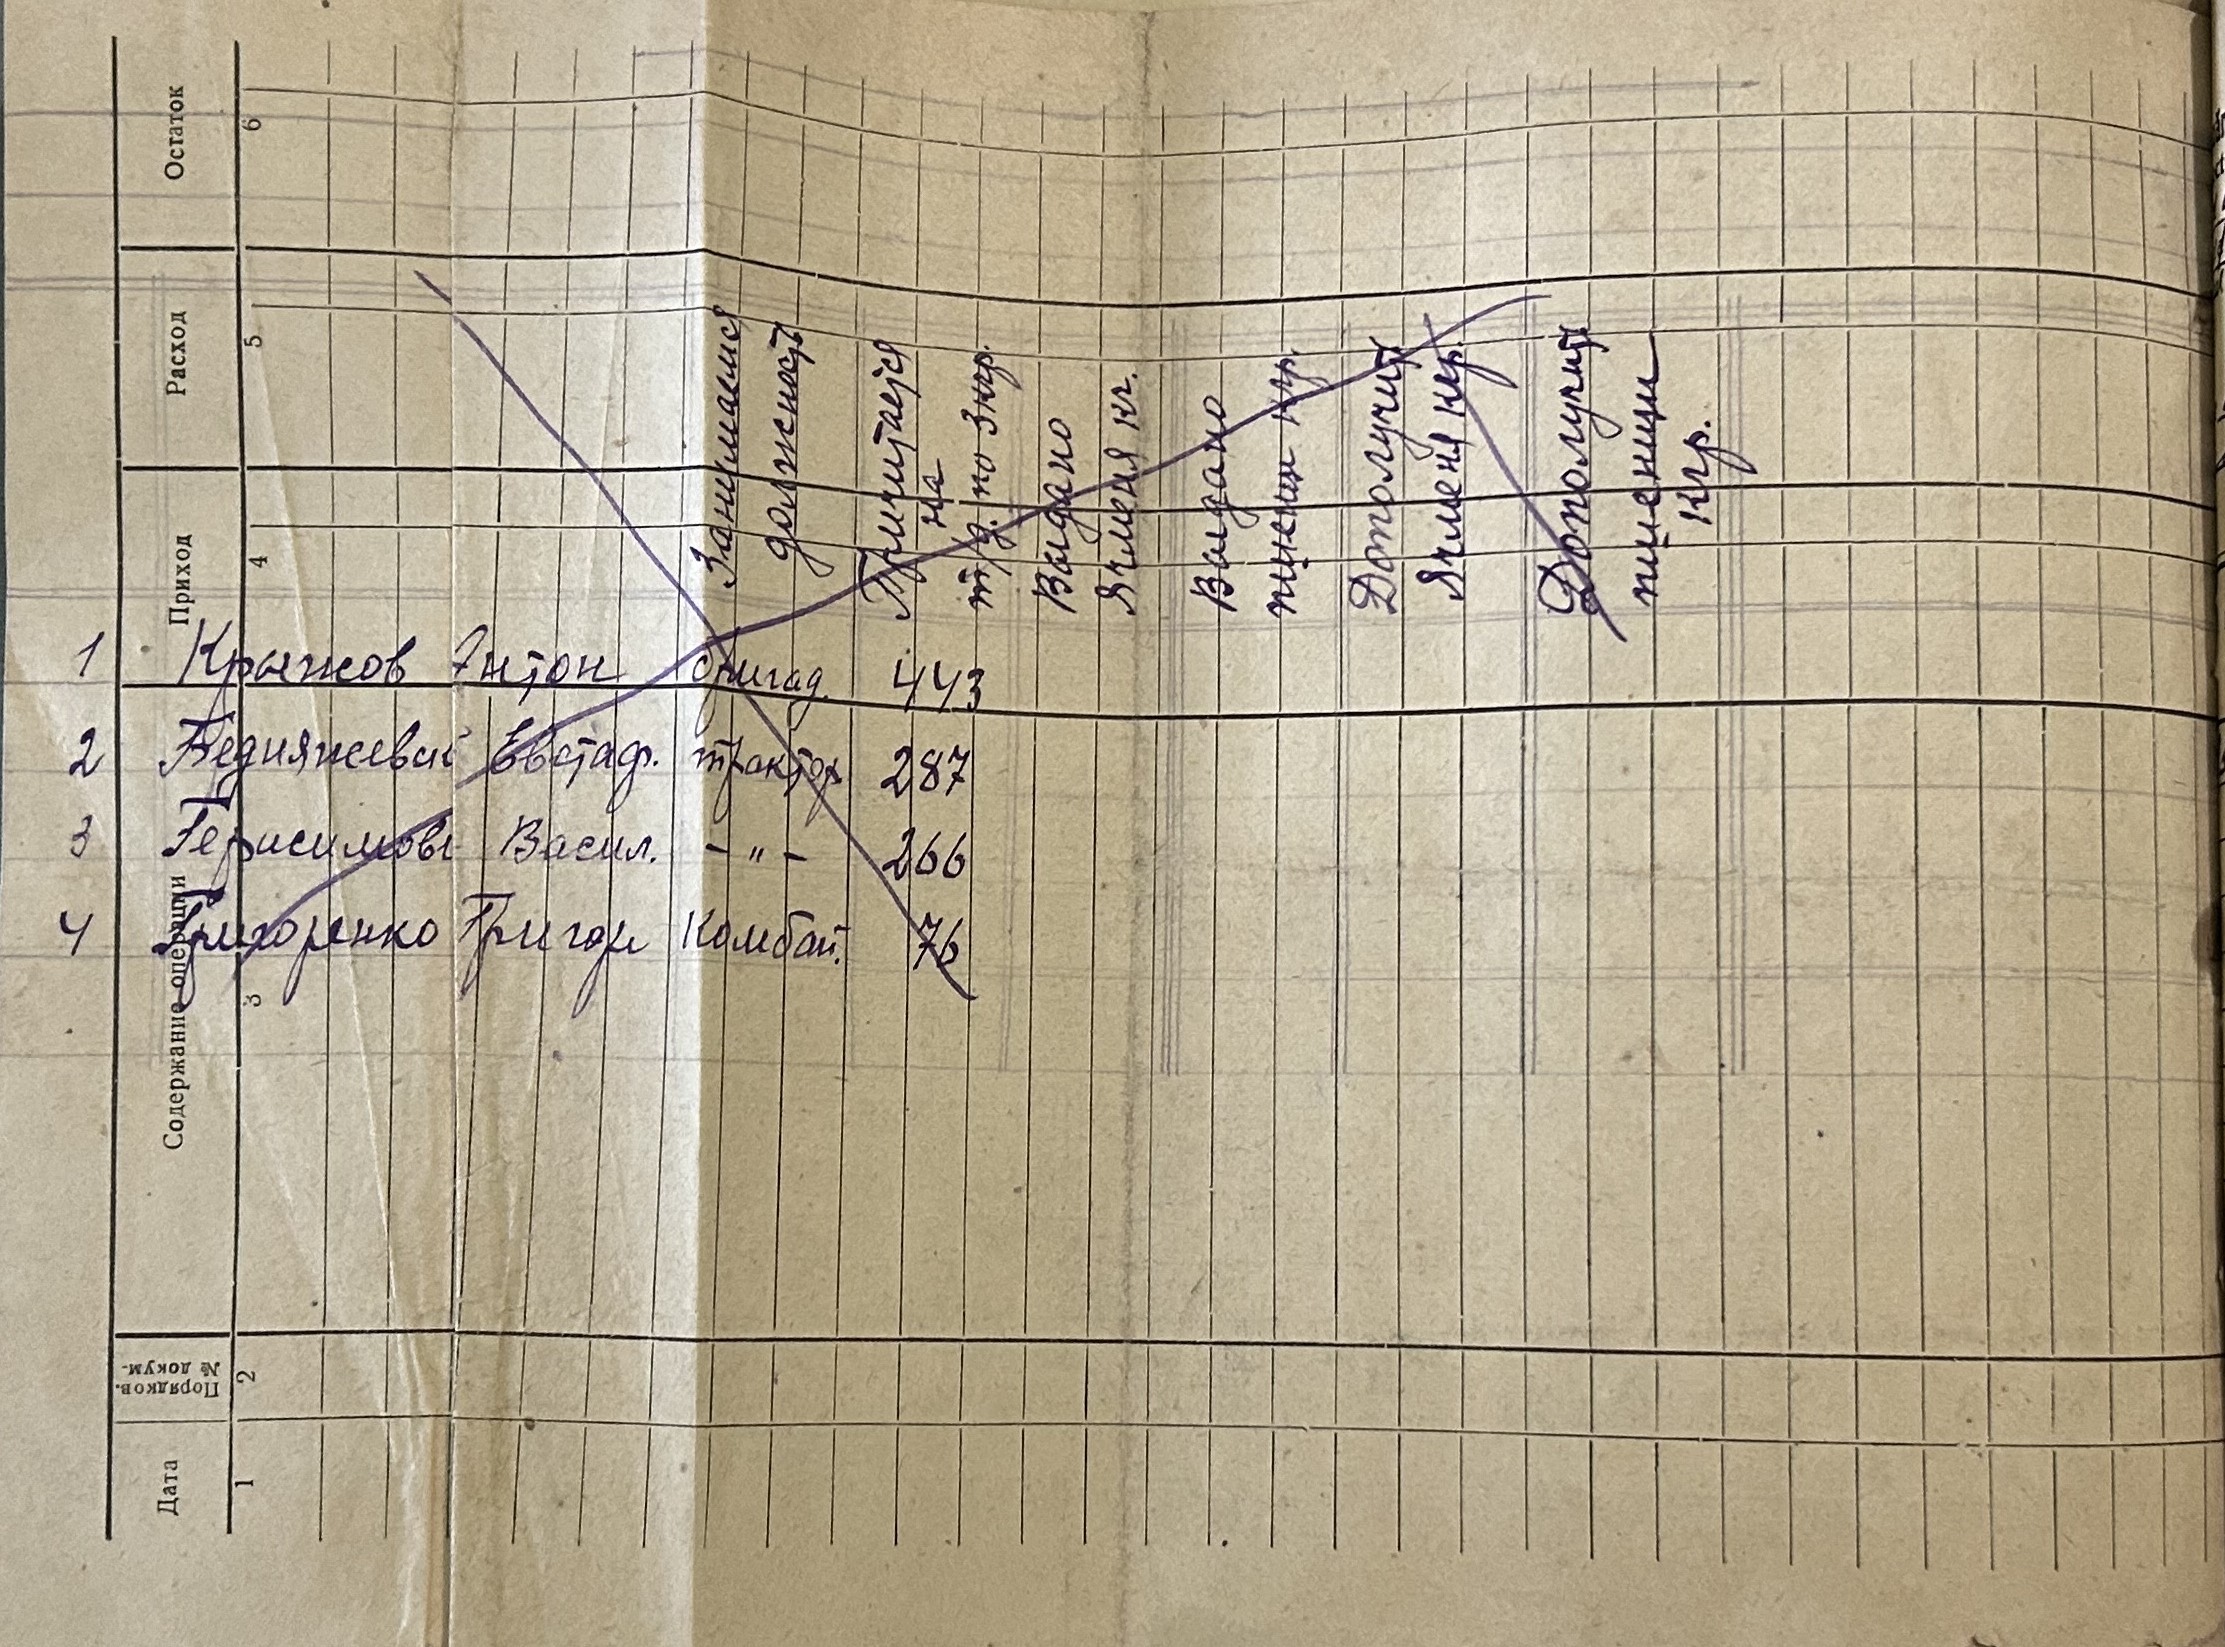 Остаток
6
Расход
5
Приход
4
Содержание операции
3
Порядков.
№ докум.
2
Дата
1
Занимаемая
должность
Причитается
на
т/д. по 3 кгр.
Выдано
Ячменя кг.
Выдано
пшениц кгр.
Дополучить
Ячменя кгр.
Дополучить
пшеницы
кгр.
1 Крыжов Антон бригад. 443
2 Евстаф. трактор 287
3 Герасимов Васил. - " - 266
4 Григоренко Григори Комбай. 76